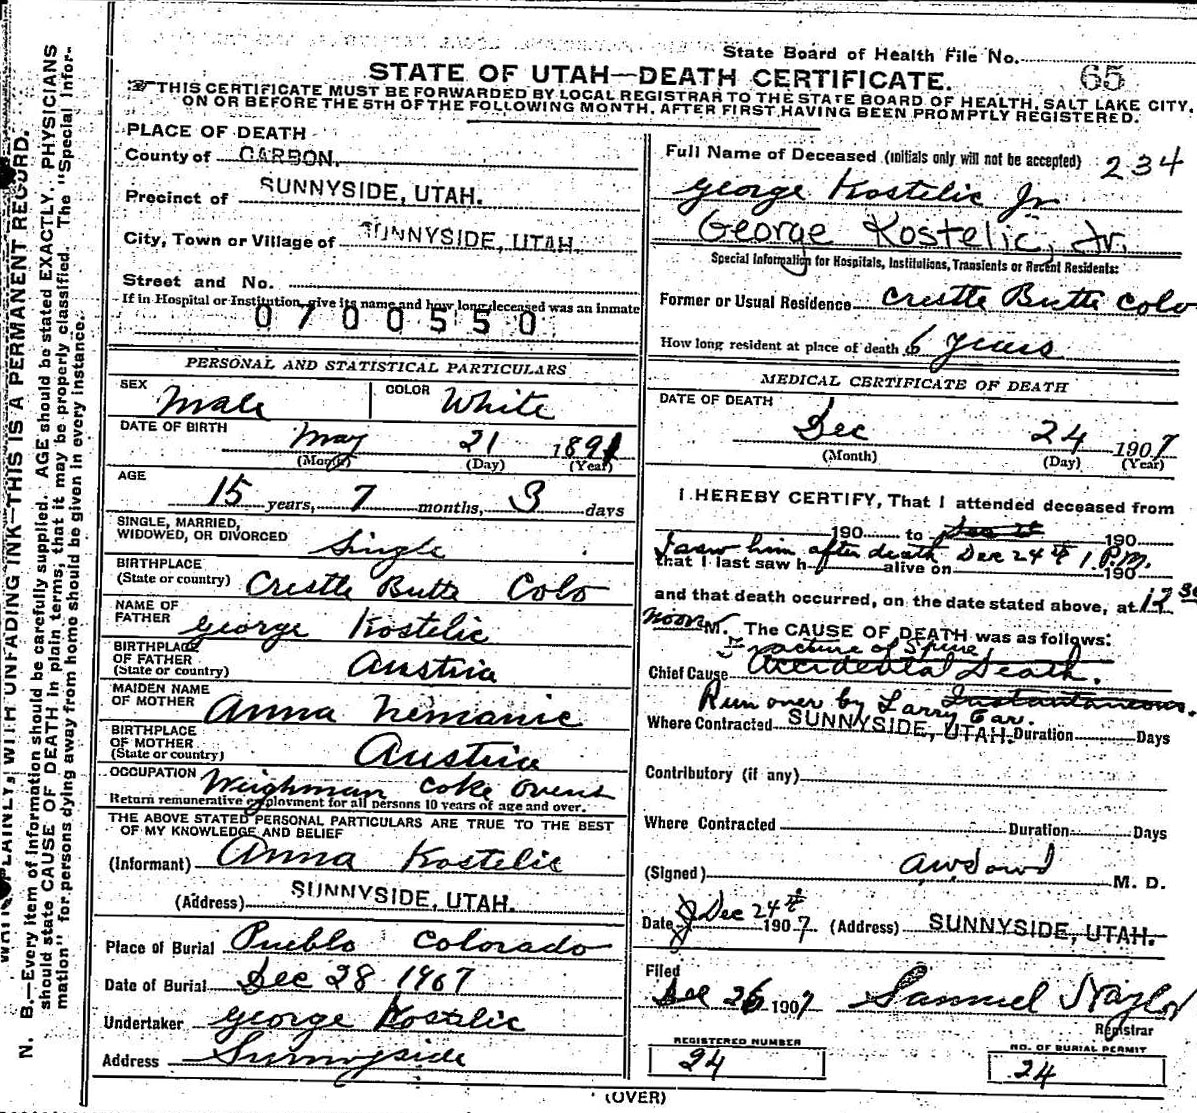 State Board of Health File No. 65
STATE OF UTAH—DEATH CERTIFICATE.
THIS CERTIFICATE MUST BE FORWARDED BY LOCAL REGISTRAR TO THE STATE BOARD OF HEALTH, SALT LAKE CITY,
ON OR BEFORE THE 5TH OF THE FOLLOWING MONTH, AFTER FIRST HAVING BEEN PROMPTLY REGISTERED.
PLACE OF DEATH
County of CARBON.
Precinct of SUNNYSIDE, UTAH.
City, Town or Village of SUNNYSIDE, UTAH.
Street and No.
If in Hospital or Institution, give its name and how long deceased was an inmate
0700550
PERSONAL AND STATISTICAL PARTICULARS
SEX Male COLOR White
DATE OF BIRTH May 21 1891
(Month) (Day) (Year)
AGE 15 years, 7 months, 3 days
SINGLE, MARRIED,
WIDOWED, OR DIVORCED Single
BIRTHPLACE
(State or country) Crestle Butte Colo
NAME OF
FATHER George Kostelic
BIRTHPLACE
OF FATHER
(State or country) Austria
MAIDEN NAME
OF MOTHER Anna Nemanic
BIRTHPLACE
OF MOTHER
(State or country) Austria
OCCUPATION Weighman Coke Ovens
Return remunerative employment for all persons 10 years of age and over.
THE ABOVE STATED PERSONAL PARTICULARS ARE TRUE TO THE BEST
OF MY KNOWLEDGE AND BELIEF
(Informant) Anna Kostelic
(Address) SUNNYSIDE, UTAH.
Place of Burial Pueblo Colorado
Date of Burial Dec 28 1907
Undertaker George Kostelic
Address Sunnyside
Full Name of Deceased (initials only will not be accepted) 234
George Kostelic Jr
George Kostelic, Jr.
Special Information for Hospitals, Institutions, Transients or Recent Residents:
Former or Usual Residence Crestle Butte Colo
How long resident at place of death 6 years
MEDICAL CERTIFICATE OF DEATH
DATE OF DEATH
Dec 24 1907
(Month) (Day) (Year)
I HEREBY CERTIFY, That I attended deceased from
190 to 190
I saw him after death Dec 24th 1 P.M.
that I last saw h alive on 190
and that death occurred, on the date stated above, at 12 30
noon M. The CAUSE OF DEATH was as follows:
Fracture of Spine
Chief Cause Accidental Death.
Run over by Larry Car. Instantaneous.
Where Contracted SUNNYSIDE, UTAH. Duration Days
Contributory (if any)
Where Contracted Duration Days
(Signed) A.W. Dowd M. D.
Date Dec 24th 1907 (Address) SUNNYSIDE, UTAH.
Filed
Dec 26 1907 Samuel Naylor
Registrar
REGISTERED NUMBER
24
NO. OF BURIAL PERMIT
24
(OVER)
PLAINLY, WITH UNFADING INK—THIS IS A PERMANENT RECORD.
N. B.—Every item of information should be carefully supplied. AGE should be stated EXACTLY. PHYSICIANS
should state CAUSE OF DEATH in plain terms, that it may be properly classified. The "Special Infor-
mation" for persons dying away from home should be given in every instance.